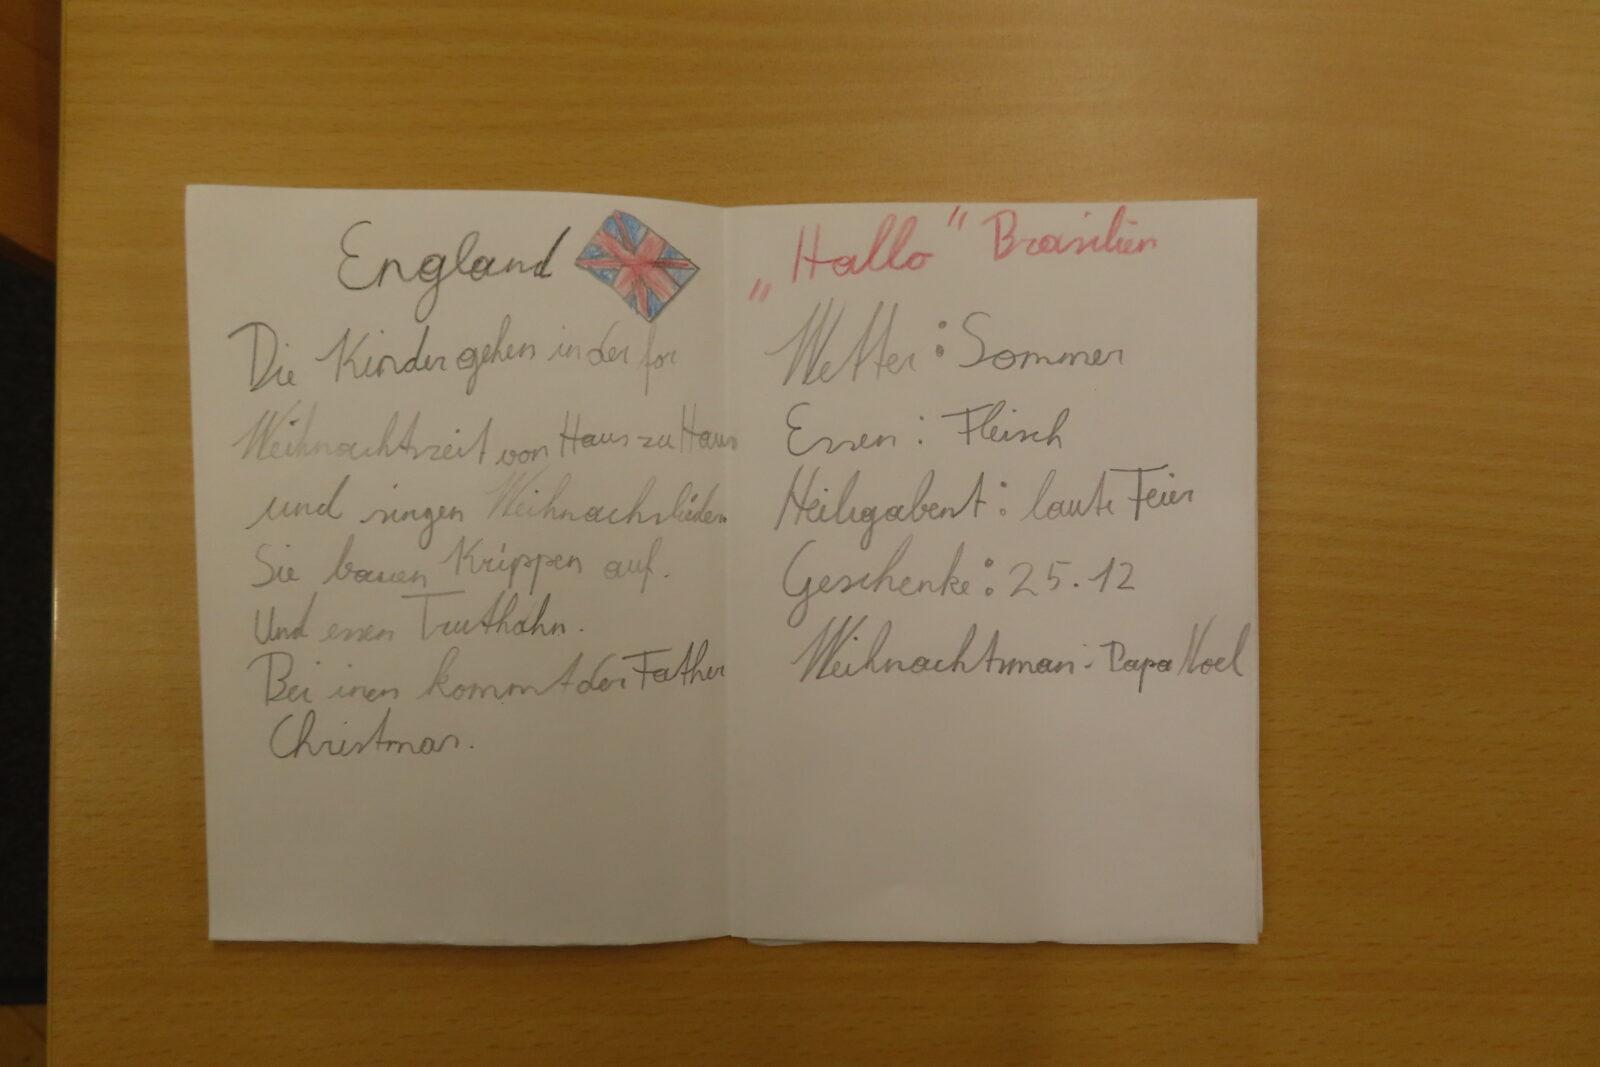 England
Die Kinder gehen in der for
Weihnachtszeit von Haus zu Haus
und singen Weihnachslieder.
Sie bauen Krippen auf.
Und essen Truthahn.
Bei inen kommt der Father
Christmas.
„Hallo“ Brasilien
Wetter: Sommer
Essen: Fleisch
Heiligabent: laute Feier
Geschenke: 25.12
Weihnachtsman: Papa Noel